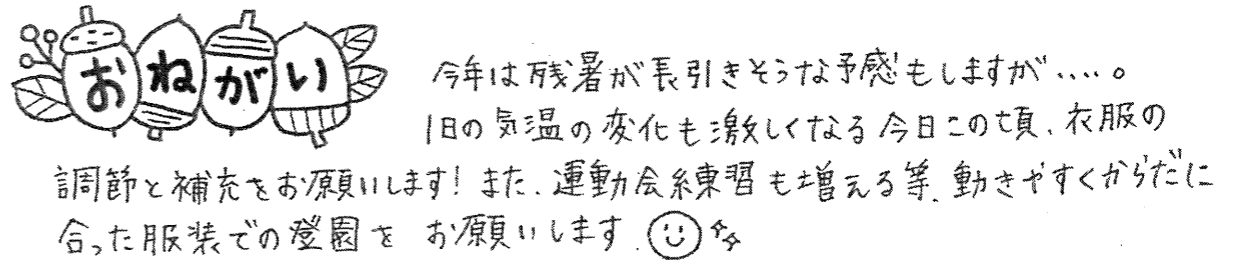 おねがい
今年は残暑が長引きそうな予感もしますが‥‥。
1日の気温の変化も激しくなる今日この頃、衣服の
調節と補充をお願いします!また、運動会練習も増える等、動きやすくからだに
合った服装での登園を お願いします。